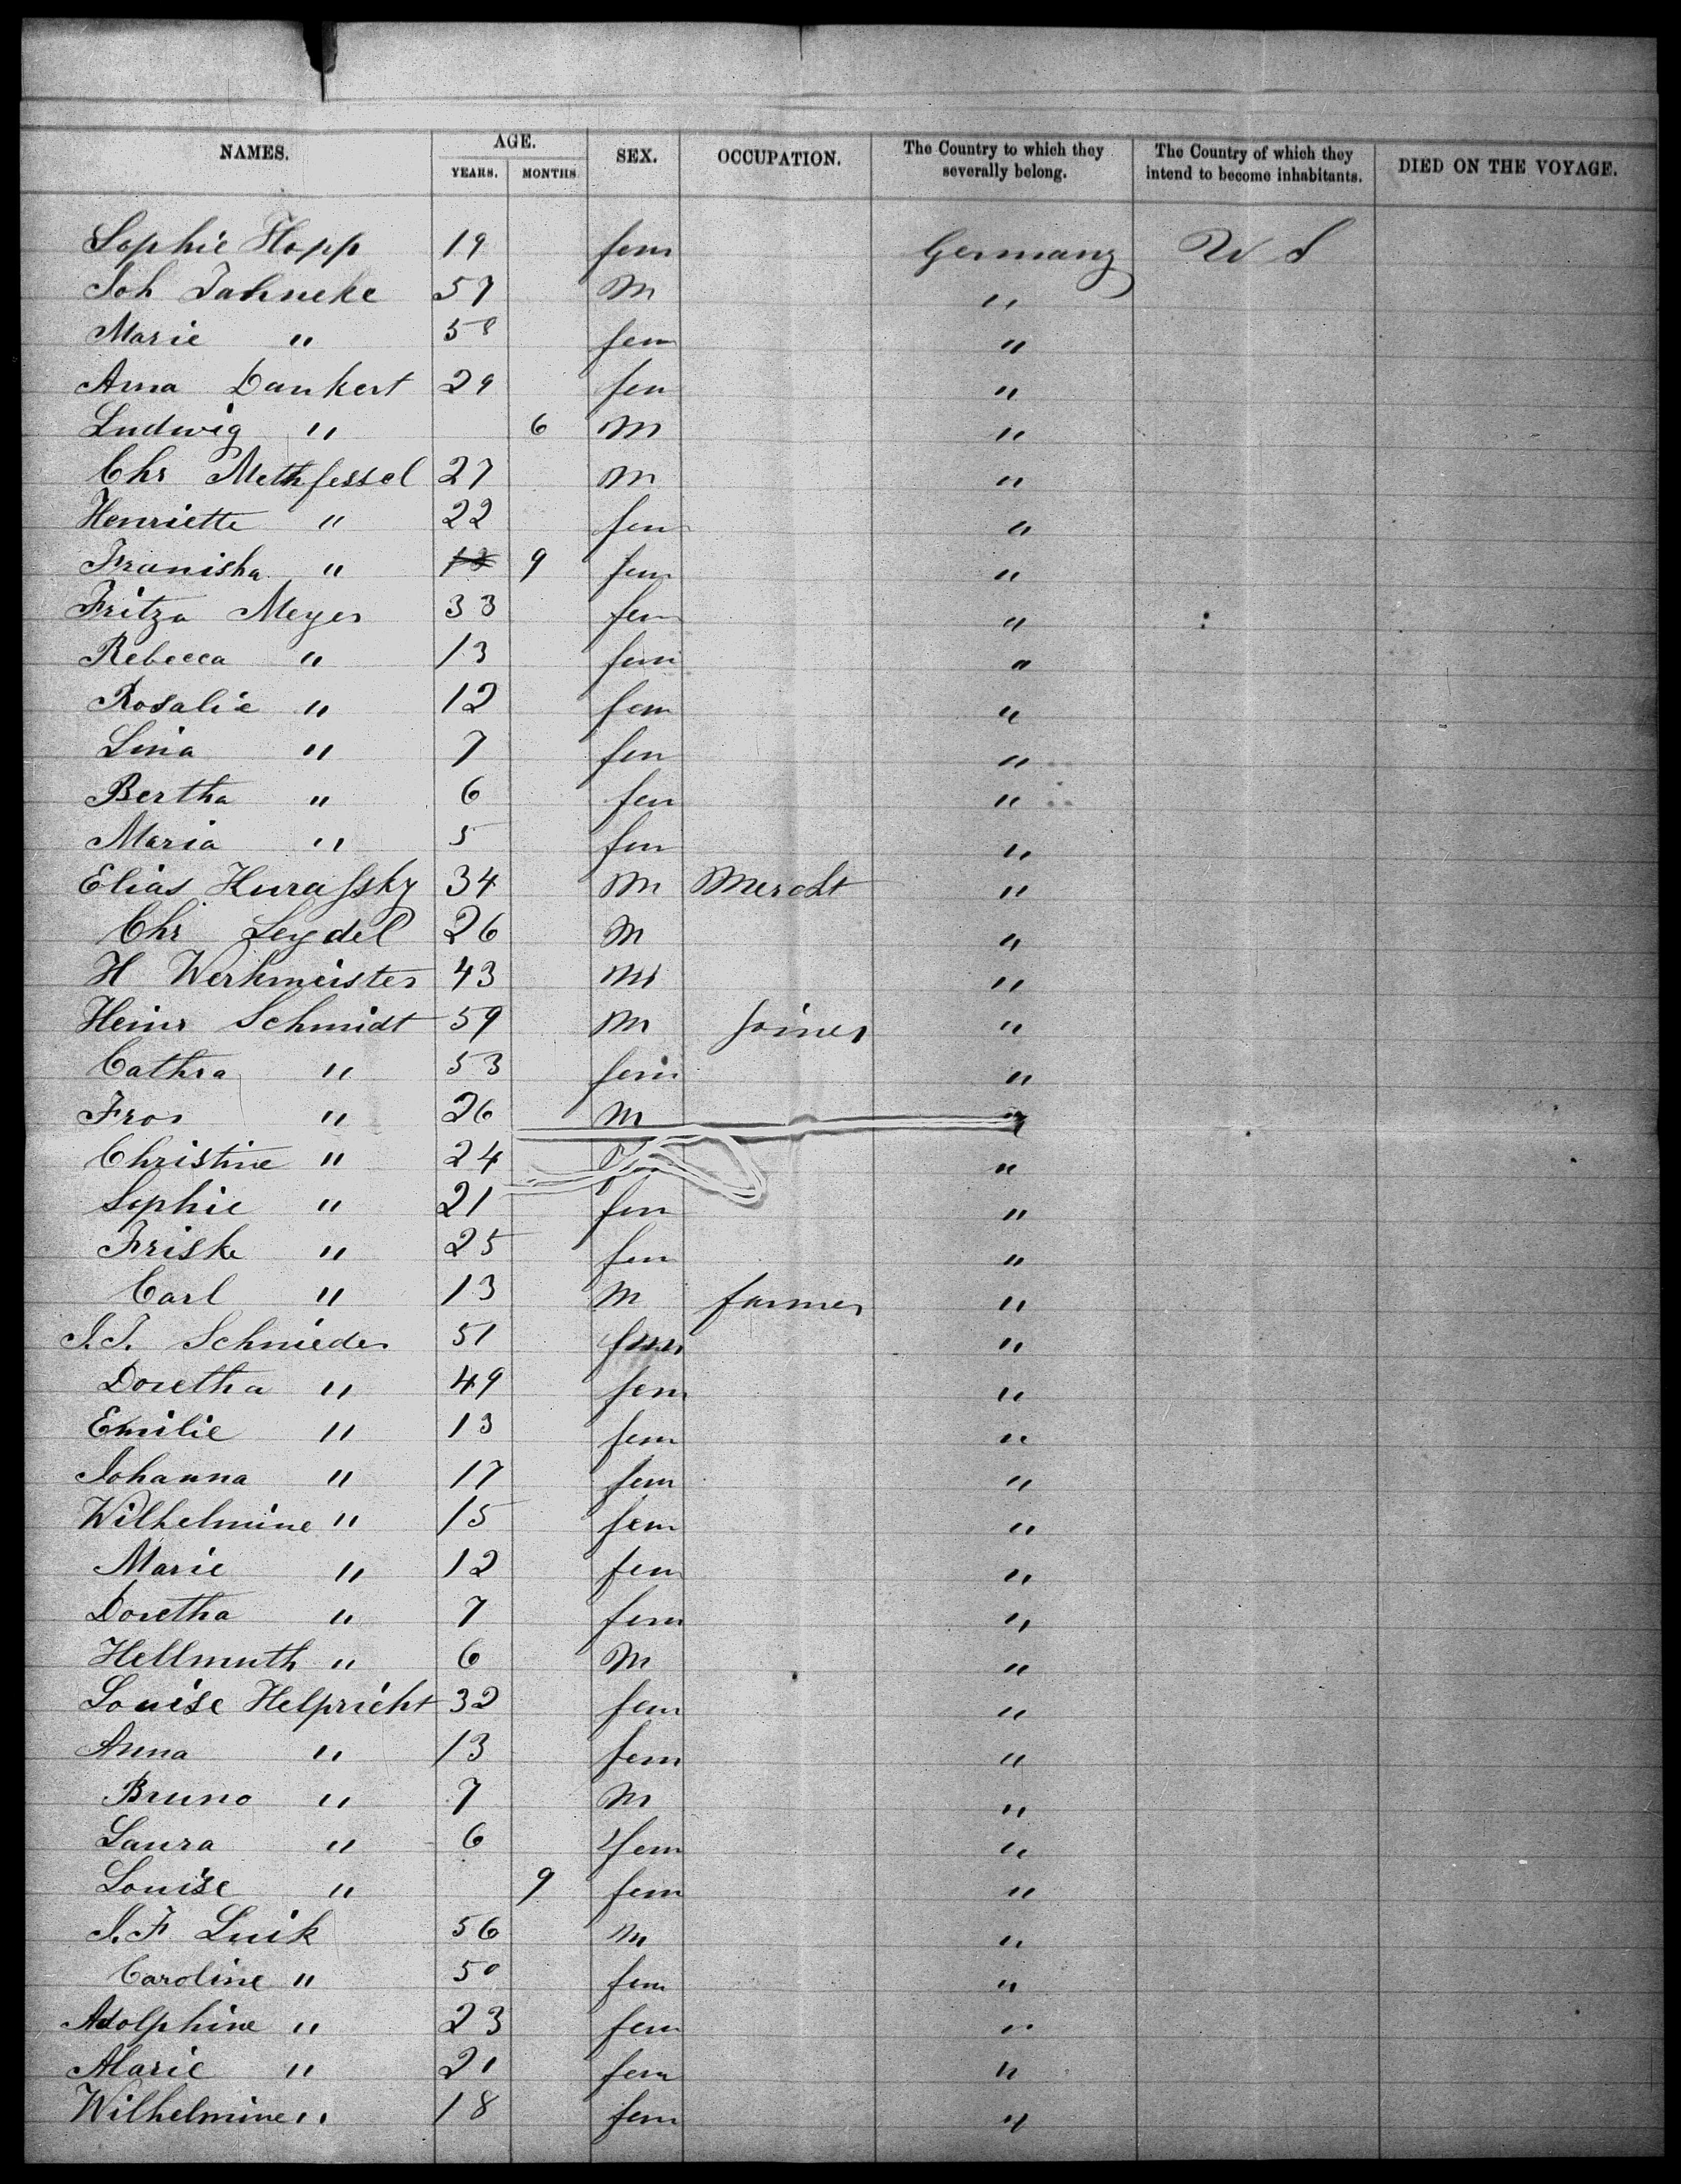 NAMES. AGE. SEX. OCCUPATION. The Country to which they severally belong. The Country of which they intend to become inhabitants. DIED ON THE VOYAGE.
YEARS. MONTHS
Sophie Hopp 19 fem Germany U S
Joh Jahneke 57 M "
Marie " 58 fem "
Anna Dankert 29 fem "
Ludwig " 6 M "
Chr Methfessel 27 M "
Henriette " 22 fem "
Franisha " 9 fem "
Fritza Meyer 33 fem "
Rebecca " 13 fem "
Rosalie " 12 fem "
Lina " 7 fem "
Bertha " 6 fem "
Maria " 5 fem "
Elias Kurassky 34 M Mercht "
Chr Seydel 26 M "
H Werkmeister 43 M "
Heinr Schmidt 59 M Joiner "
Cathra " 53 fem "
Fror " 26 M "
Christine " 24 "
Sophie " 21 fem "
Friske " 25 fem "
Carl " 13 M farmer "
J. J. Schnieder 51 "
Doretha " 49 fem "
Emilie " 13 fem "
Johanna " 17 fem "
Wilhelmine " 15 fem "
Marie " 12 fem "
Doretha " 7 fem "
Hellmuth " 6 M "
Louise Helpricht 32 fem "
Anna " 13 fem "
Bruno " 7 M "
Laura " 6 fem "
Louise " 9 fem "
J. F Luik 56 M "
Caroline " 50 fem "
Adolphine " 23 fem "
Marie " 21 fem "
Wilhelmine " 18 fem "